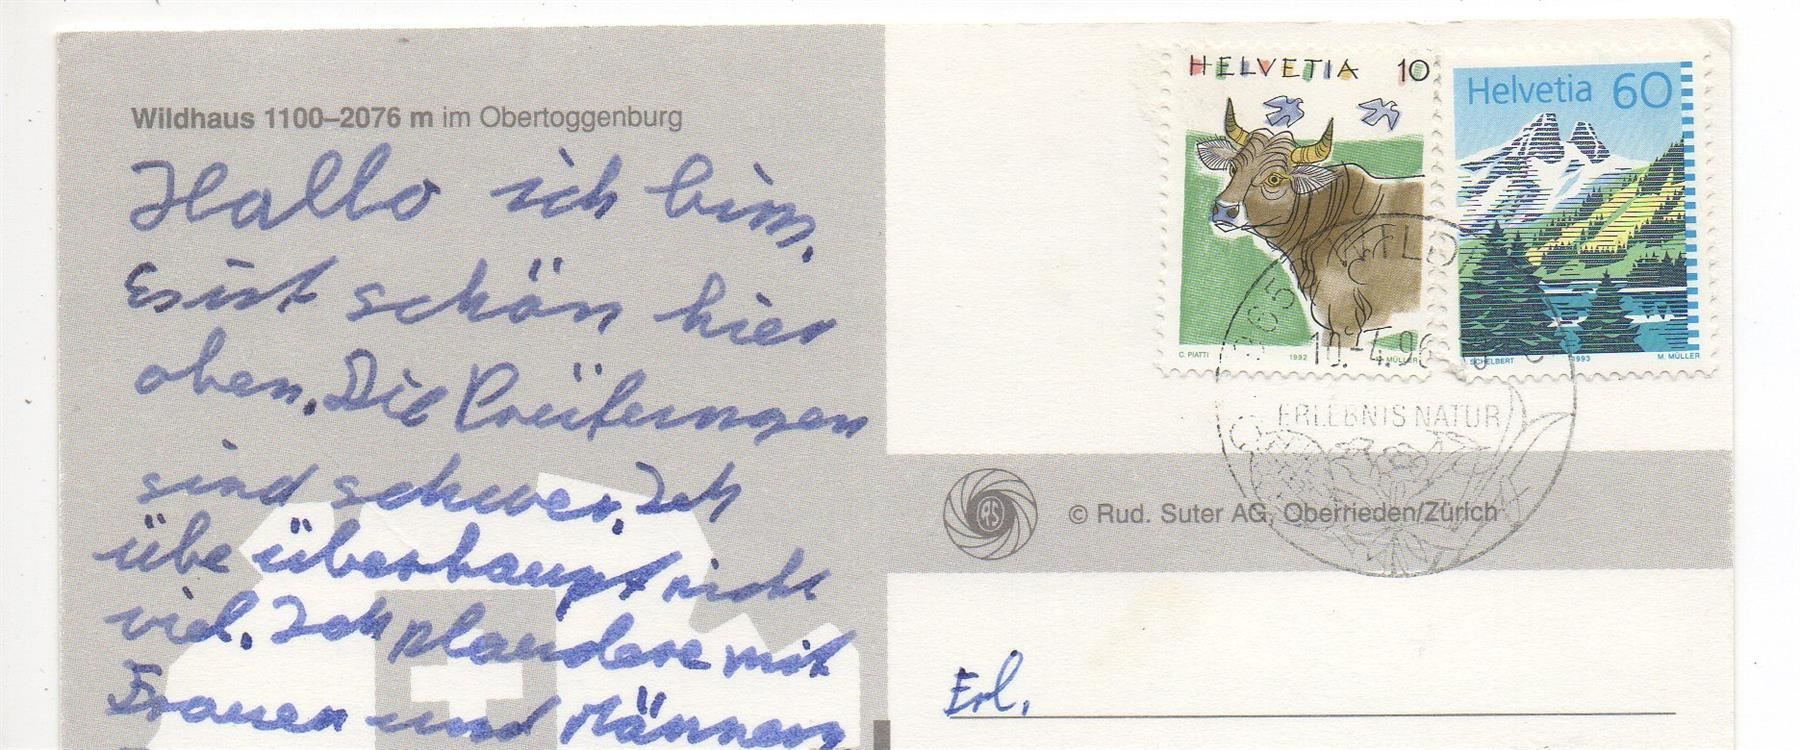 Wildhaus 1100–2076 m im Obertoggenburg
Hallo ich bin.
Es ist schön hier
oben. Die Prüfungen
sind schwer. Ich
übe überhaupt nicht
viel. Ich plaudere mit
Frauen und Männern
HELVETIA 10
C. PIATTI 1992 MÜLLER
Helvetia 60
SCHELBERT 1993 M. MÜLLER
10.-4.96
ERLEBNIS NATUR
RS
© Rud. Suter AG, Oberrieden/Zürich
Erl.